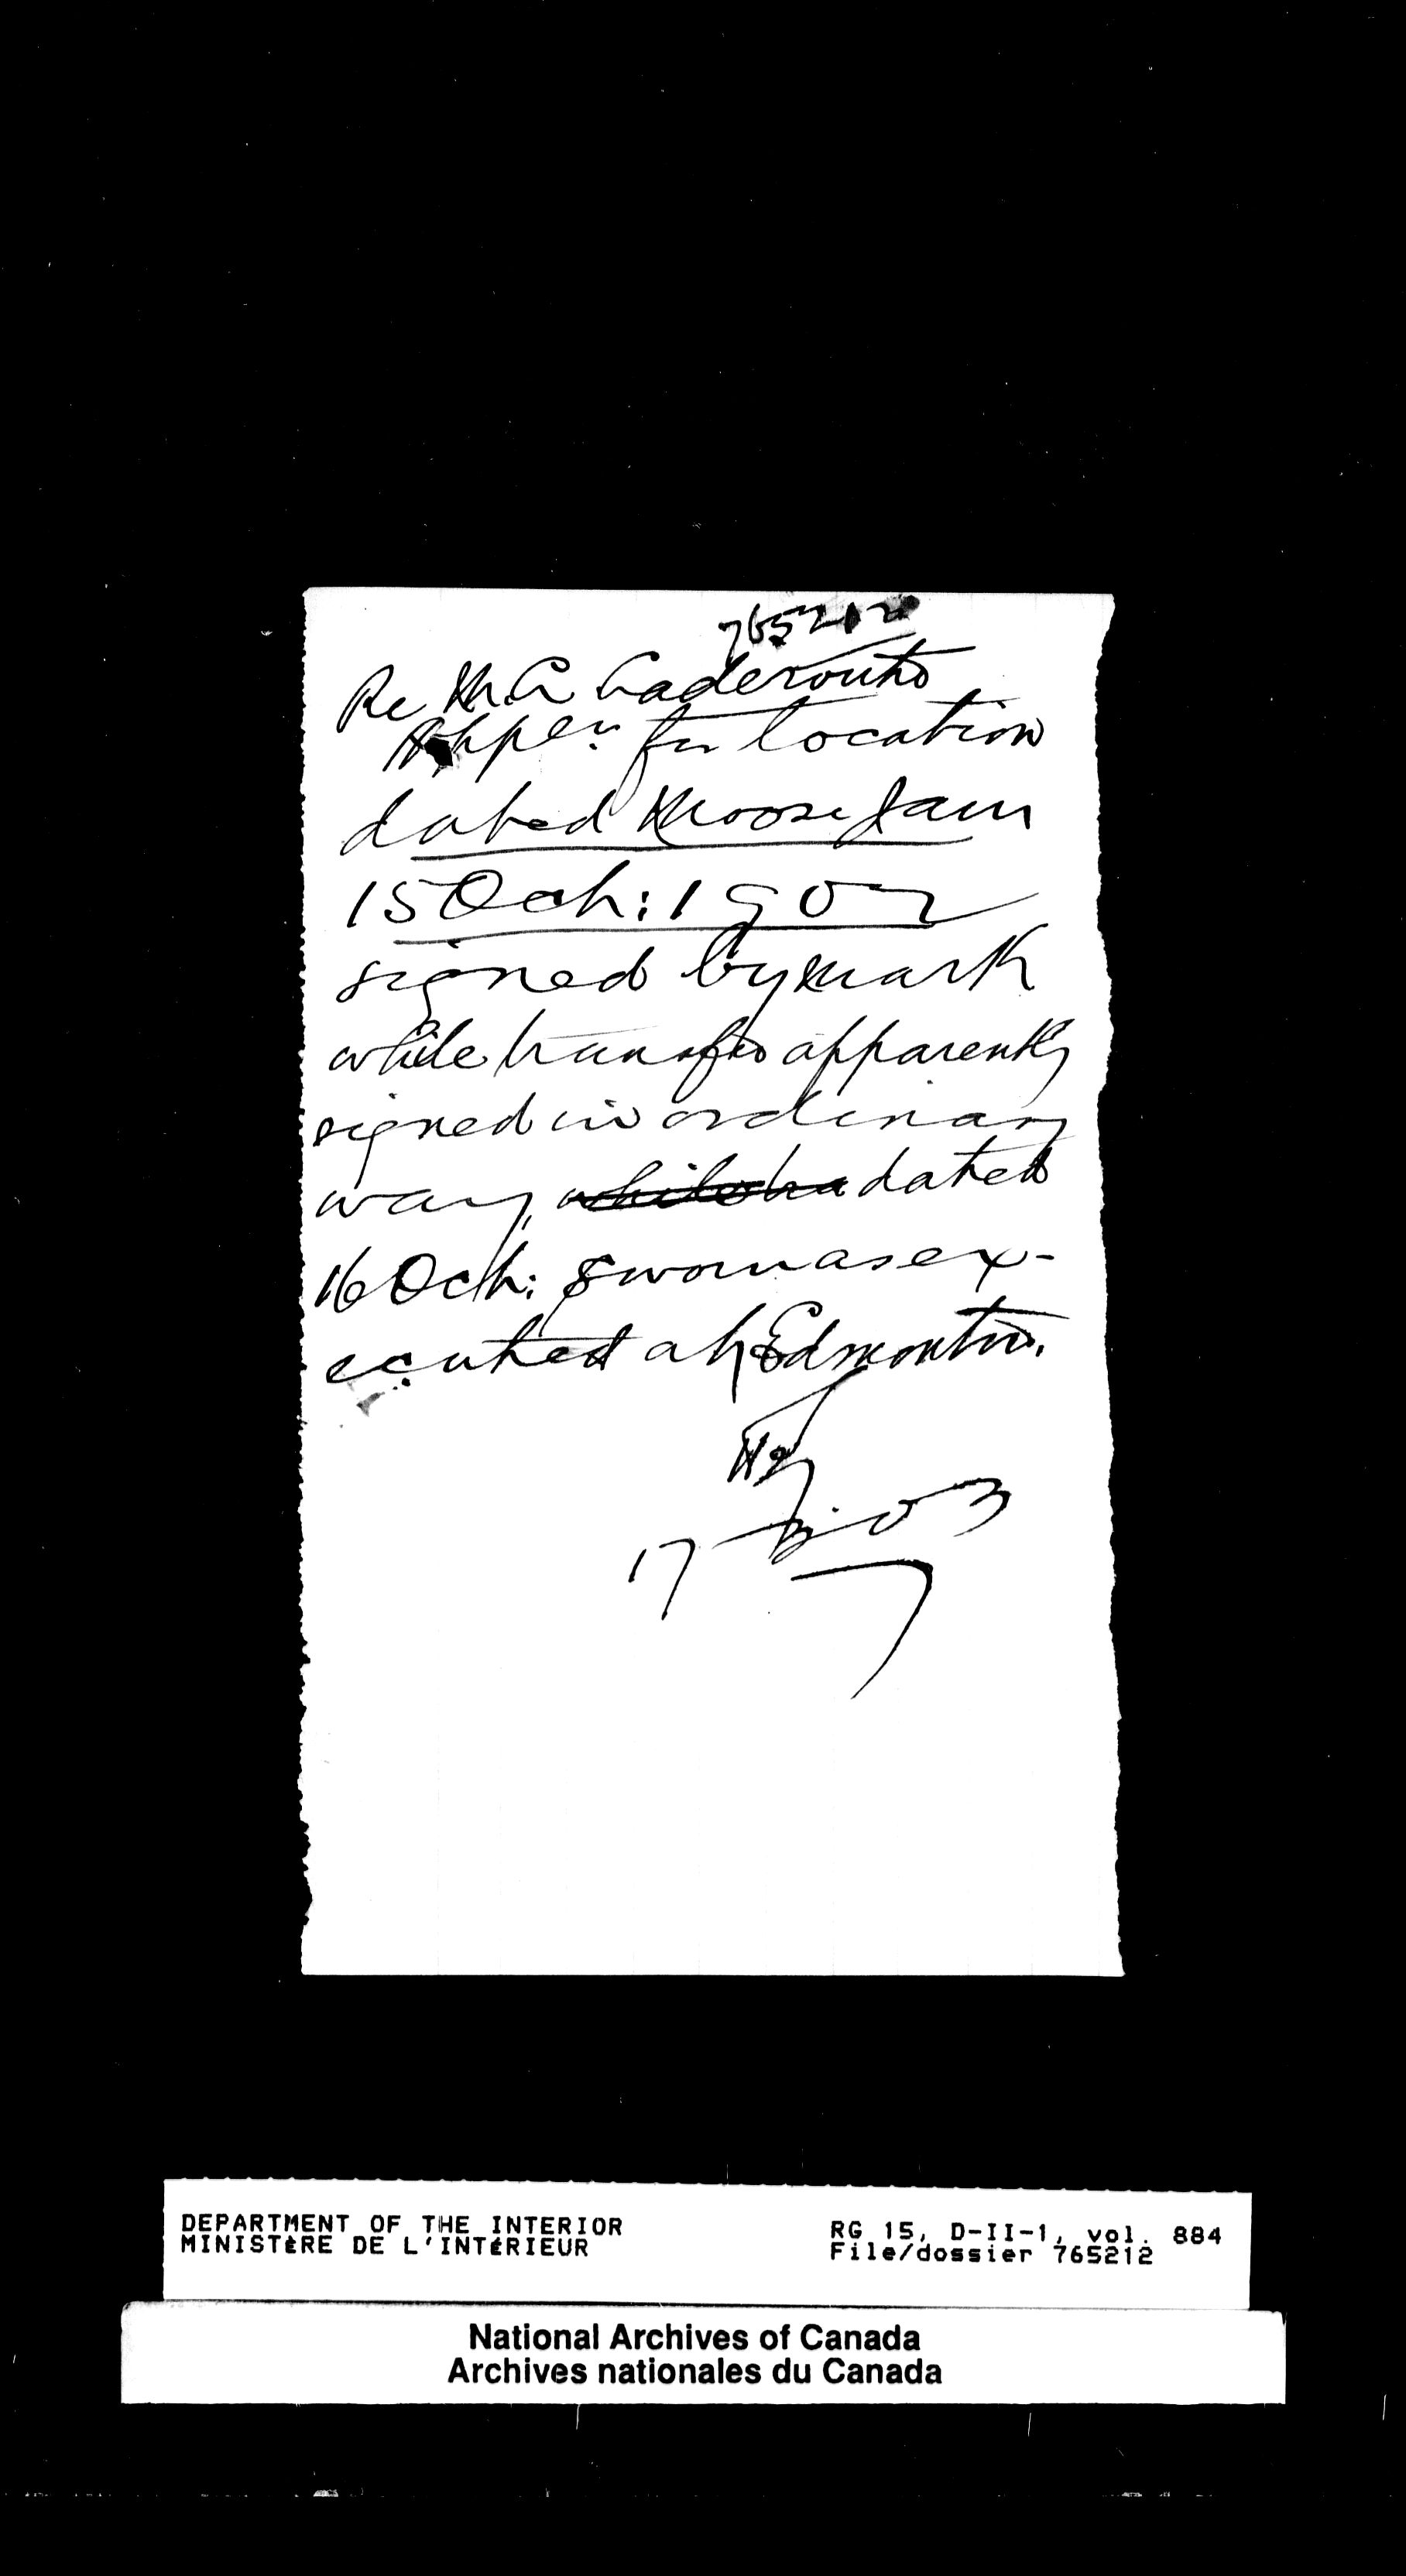 765212
Re M. A. Laderoute
Appln. for location
dated Moose Jaw
15 Oct: 1902
signed by mark
while transfer apparently
signed in ordinary
way, while tra dated
16 Oct: sworn as ex-
ecuted at Edmonton.
17
03
DEPARTMENT OF THE INTERIOR
MINISTÈRE DE L'INTÉRIEUR
RG 15, D-II-1, vol. 884
File/dossier 765212
National Archives of Canada
Archives nationales du Canada